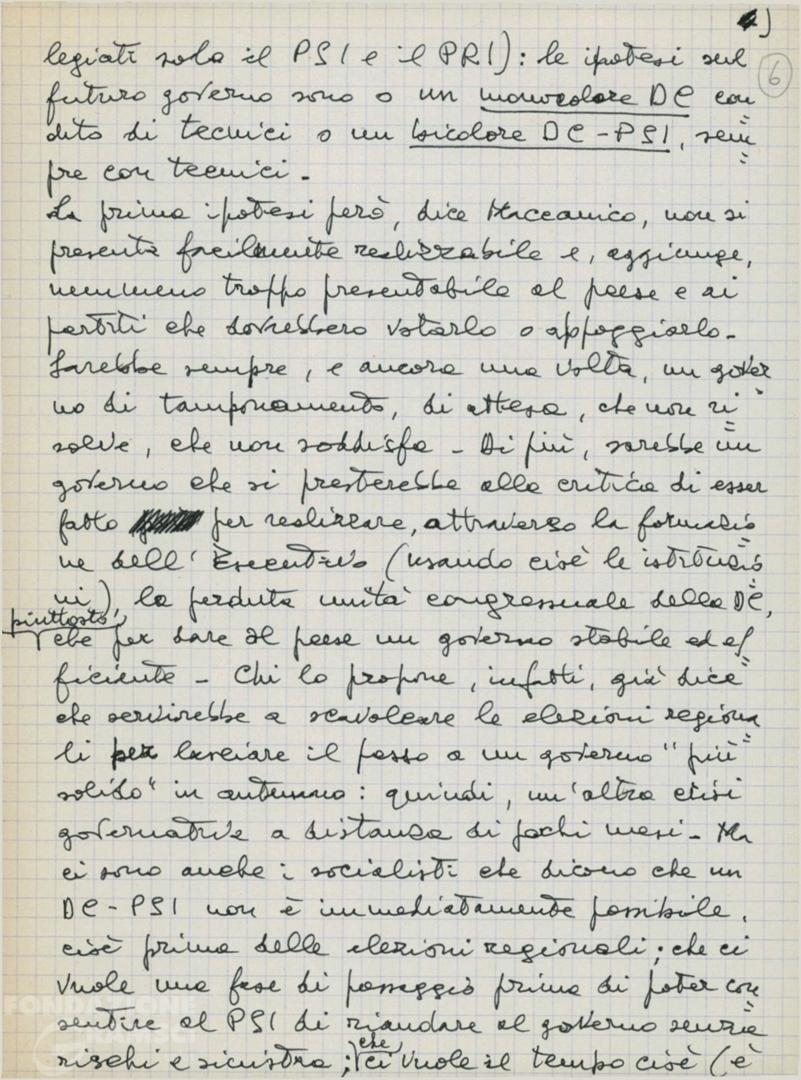 4)
6
legiati solo il PSI e il PRI): le ipotesi sul
futuro governo sono o un monocolore DC con=
dito di tecnici o un bicolore DC-PSI, sem=
pre con tecnici -
La prima ipotesi però, dice Maccanico, non si
presenta facilmente realizzabile e, aggiunge,
nemmeno troppo presentabile al paese e ai
partiti che dovrebbero votarlo o appoggiarlo -
Sarebbe sempre, e ancora una volta, un gover=
no di tamponamento, di attesa, che non ri=
solve, che non soddisfa - Di più, sarebbe un
governo che si presterebbe alla critica di esser
fatto per realizzare, attraverso la formazio=
ne dell'Esecutivo (usando cioè le istituzio=
ni) la perduta unità congressuale della DC,
piuttosto
che per dare al paese un governo stabile ed ef=
ficiente - Chi lo propone, infatti, già dice
che servirebbe a scavalcare le elezioni regiona=
li per lasciare il passo a un governo "più
solido" in autunno: quindi, un'altra crisi
governativa a distanza di pochi mesi - Ma
ci sono anche i socialisti che dicono che un
DC-PSI non è immediatamente possibile,
cioè prima delle elezioni regionali; che ci
vuole una fase di passaggio prima di poter con=
sentire al PSI di riandare al governo senza
rischi e sinistra; che ci vuole il tempo cioè (è
FONDAZIONE
GRAMSCI